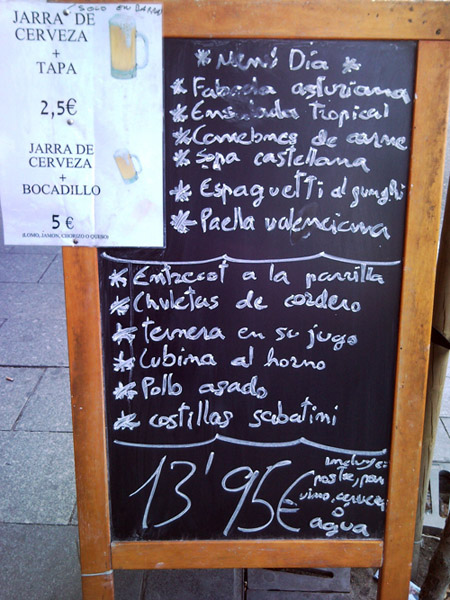 SOLO EN BARRA
JARRA DE
CERVEZA
+
TAPA
2,5€
JARRA DE
CERVEZA
+
BOCADILLO
5 €
(LOMO, JAMON, CHORIZO O QUESO)
* Menú Día *
* Fabada asturiana
* Ensalada Tropical
* Canelones de carne
* Sopa castellana
* Espaguetti al funghi
* Paella valenciana
* Entrecot a la parrilla
* Chuletas de cordero
* ternera en su jugo
* Lubina al horno
* Pollo asado
* costillas sabatini
13'95€
incluye:
postre, pan
vino, cerveza
ó
agua